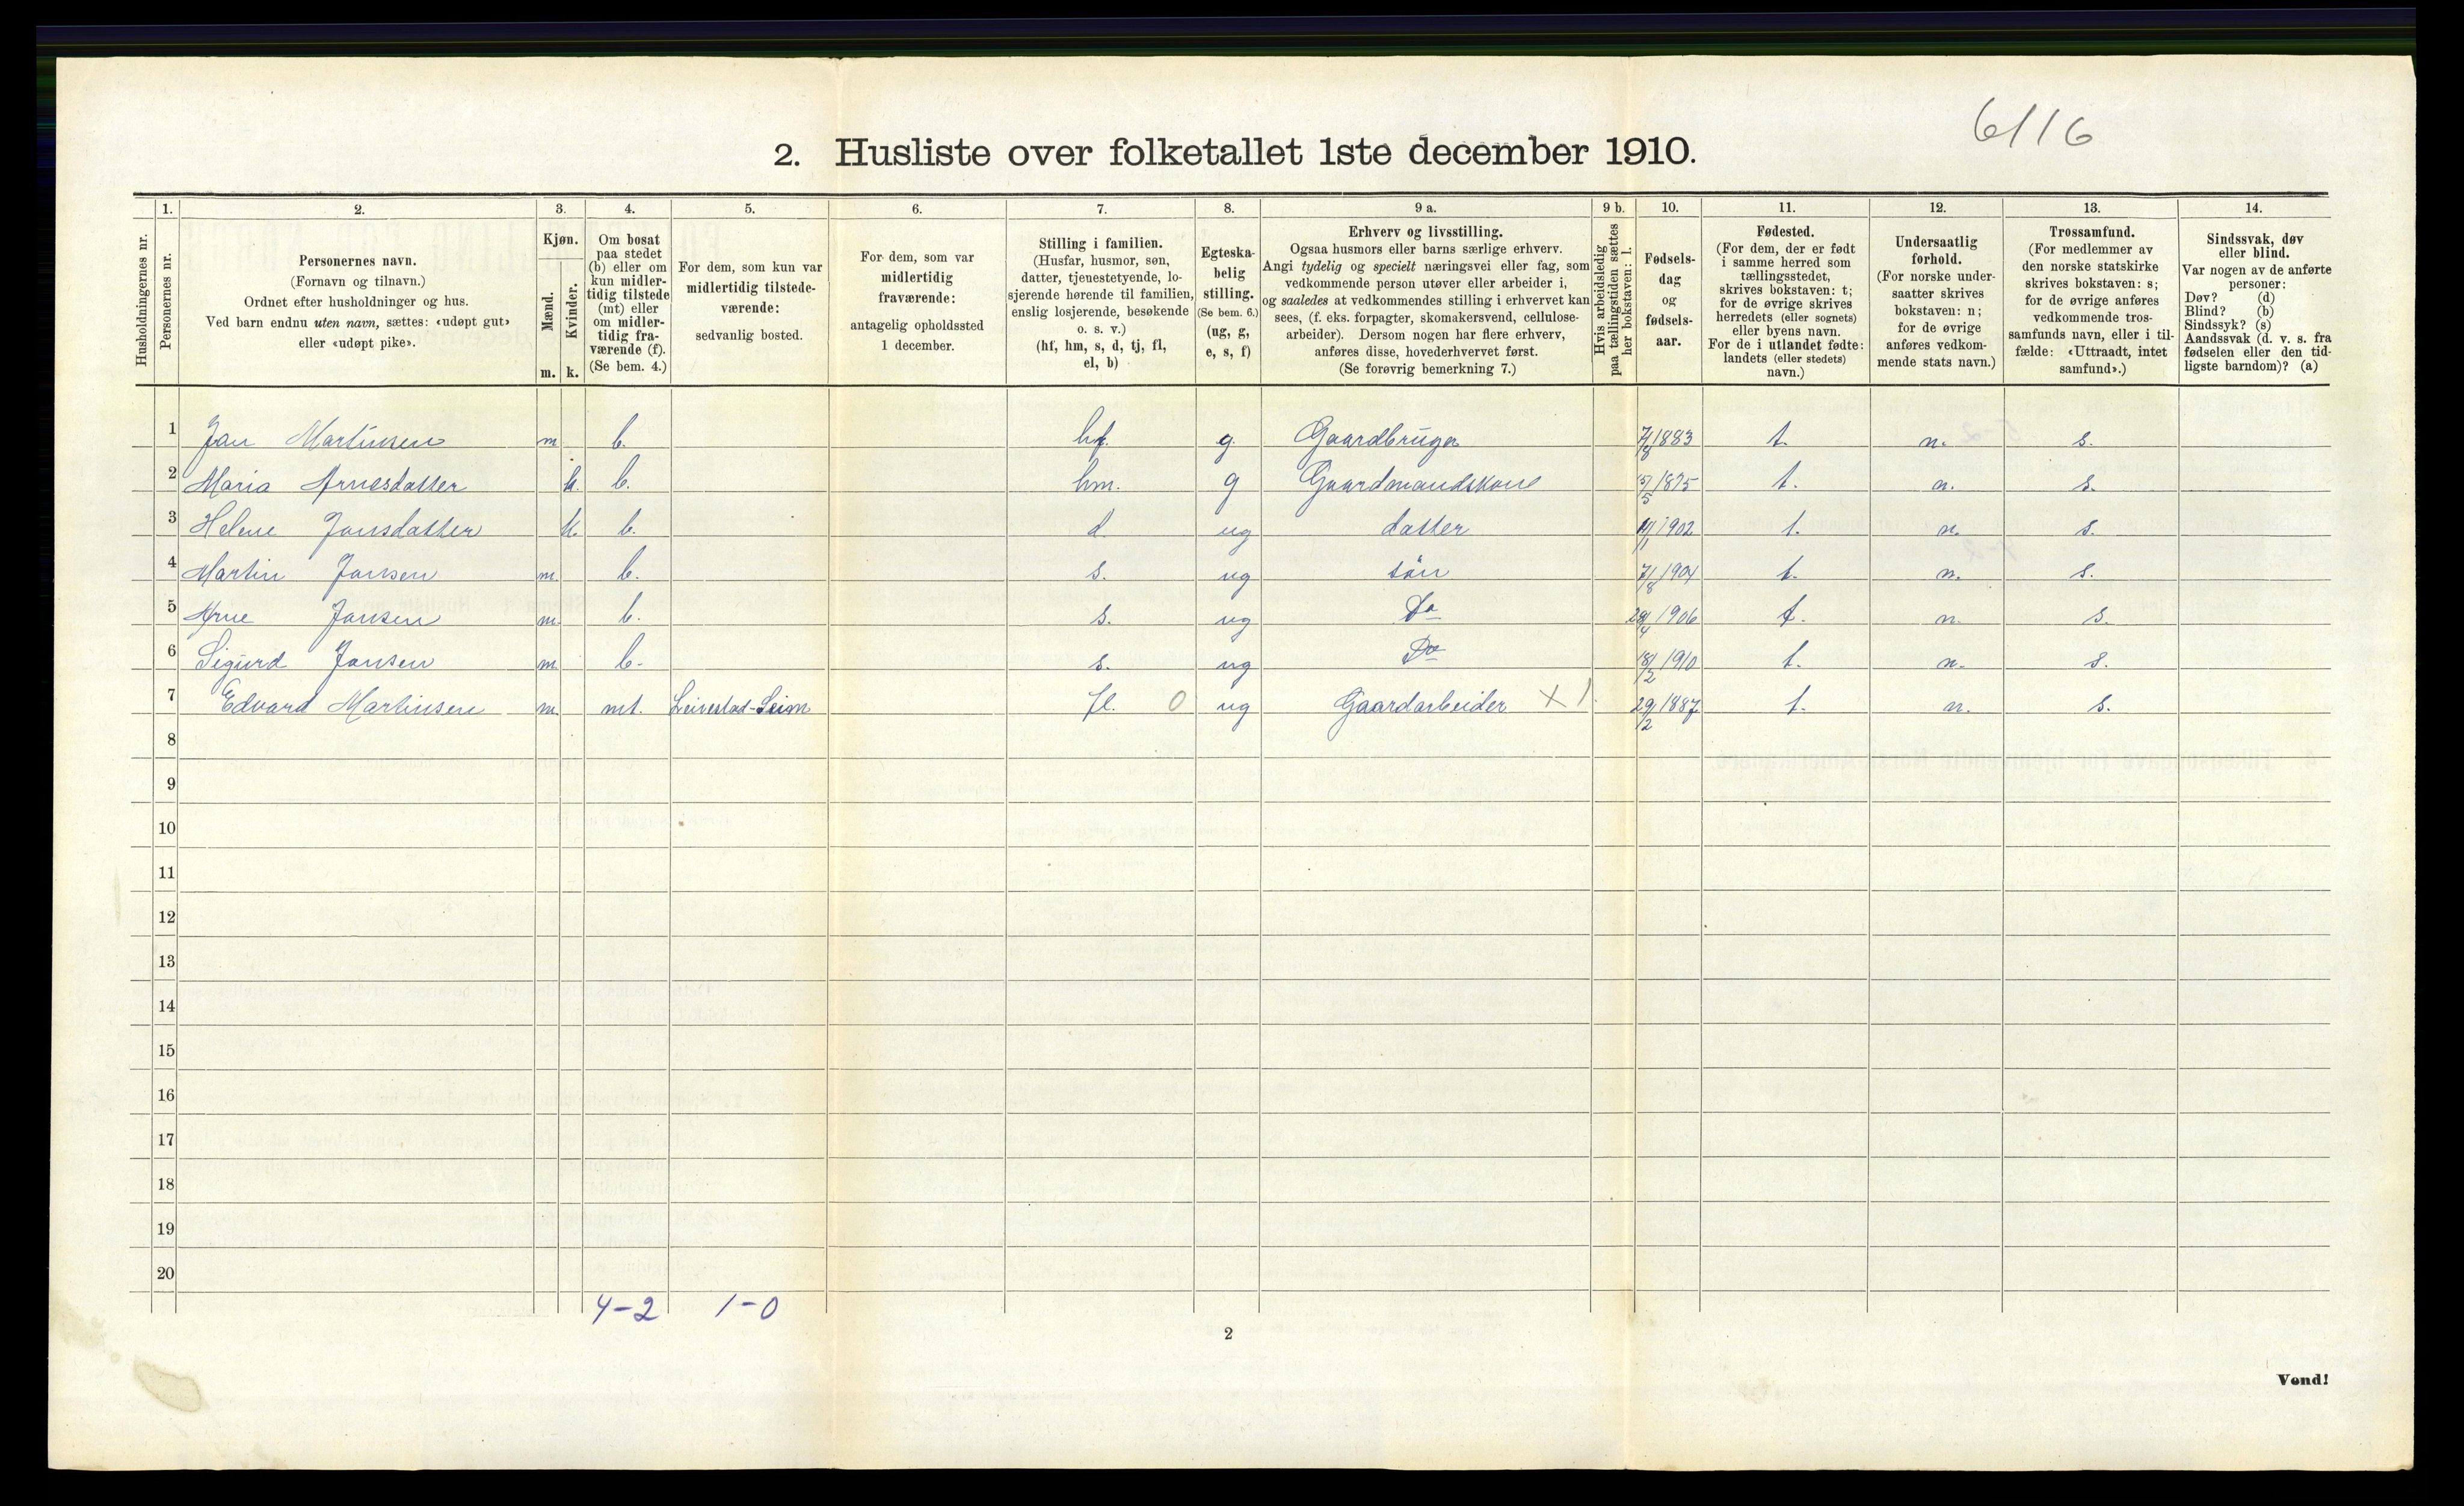 6/16
2. Husliste over folketallet 1ste december 1910.
Husholdningernes nr.
1.
Personernes nr.
2.
Personernes navn.
(Fornavn og tilnavn.)
Ordnet efter husholdninger og hus.
Ved barn endnu uten navn, sættes: «udøpt gut»
eller «udøpt pike».
3.
Kjøn.
Mænd.
Kvinder.
m. k.
4.
Om bosat
paa stedet
(b) eller om
kun midler-
tidig tilstede
(mt) eller
om midler-
tidig fra-
værende (f).
(Se bem. 4.)
5.
For dem, som kun var
midlertidig tilstede-
værende:
sedvanlig bosted.
6.
For dem, som var
midlertidig
fraværende:
antagelig opholdssted
1 december.
7.
Stilling i familien.
(Husfar, husmor, søn,
datter, tjenestetyende, lo-
sjerende hørende til familien,
enslig losjerende, besøkende
o. s. v.)
(hf, hm, s, d, tj, fl,
el, b)
8.
Egteska-
belig
stilling.
(Se bem. 6.)
(ug, g,
e, s, f)
9 a.
Erhverv og livsstilling.
Ogsaa husmors eller barns særlige erhverv.
Angi tydelig og specielt næringsvei eller fag, som
vedkommende person utøver eller arbeider i,
og saaledes at vedkommendes stilling i erhvervet kan
sees, (f. eks. forpagter, skomakersvend, cellulose-
arbeider). Dersom nogen har flere erhverv,
anføres disse, hovederhvervet først.
(Se forøvrig bemerkning 7.)
9 b.
Hvis arbeidsledig
paa tællingstiden sættes
her bokstaven: l.
10.
Fødsels-
dag
og
fødsels-
aar.
11.
Fødested.
(For dem, der er født
i samme herred som
tællingsstedet,
skrives bokstaven: t;
for de øvrige skrives
herredets (eller sognets)
eller byens navn.
For de i utlandet fødte:
landets (eller stedets)
navn.)
12.
Undersaatlig
forhold.
(For norske under-
saatter skrives
bokstaven: n;
for de øvrige
anføres vedkom-
mende stats navn.)
13.
Trossamfund.
(For medlemmer av
den norske statskirke
skrives bokstaven: s;
for de øvrige anføres
vedkommende tros-
samfunds navn, eller i til-
fælde: «Uttraadt, intet
samfund».)
14.
Sindssvak, døv
eller blind.
Var nogen av de anførte
personer:
Døv? (d)
Blind? (b)
Sindssyk? (s)
Aandssvak (d. v. s. fra
fødselen eller den tid-
ligste barndom)? (a)
1 Jan Martinsen m b. hf. g. Gaardbruger 7/8 1883 t. n. s.
2 Maria Arnesdatter k. b. hm. g Gaardmandskone 15/5 1875 t. n. s.
3 Helene Jansdatter k. b. d. ug datter 11/1 1902 t. n. s.
4 Martin Jansen m. b. s. ug sön 7/8 1904 t. n. s.
5 Arne Jansen m. b. s. ug Do 28/4 1906 t. n. s.
6 Sigurd Jansen m. b. s. ug Do 18/2 1910 t. n. s.
7 Edvard Martinsen m. mt. Leivestad-Seim fl. 0 ug Gaardarbeider X 1 29/2 1887 t. n. s.
8
9
10
11
12
13
14
15
16
17
18
19
20
4-2 1-0
2
Vend!